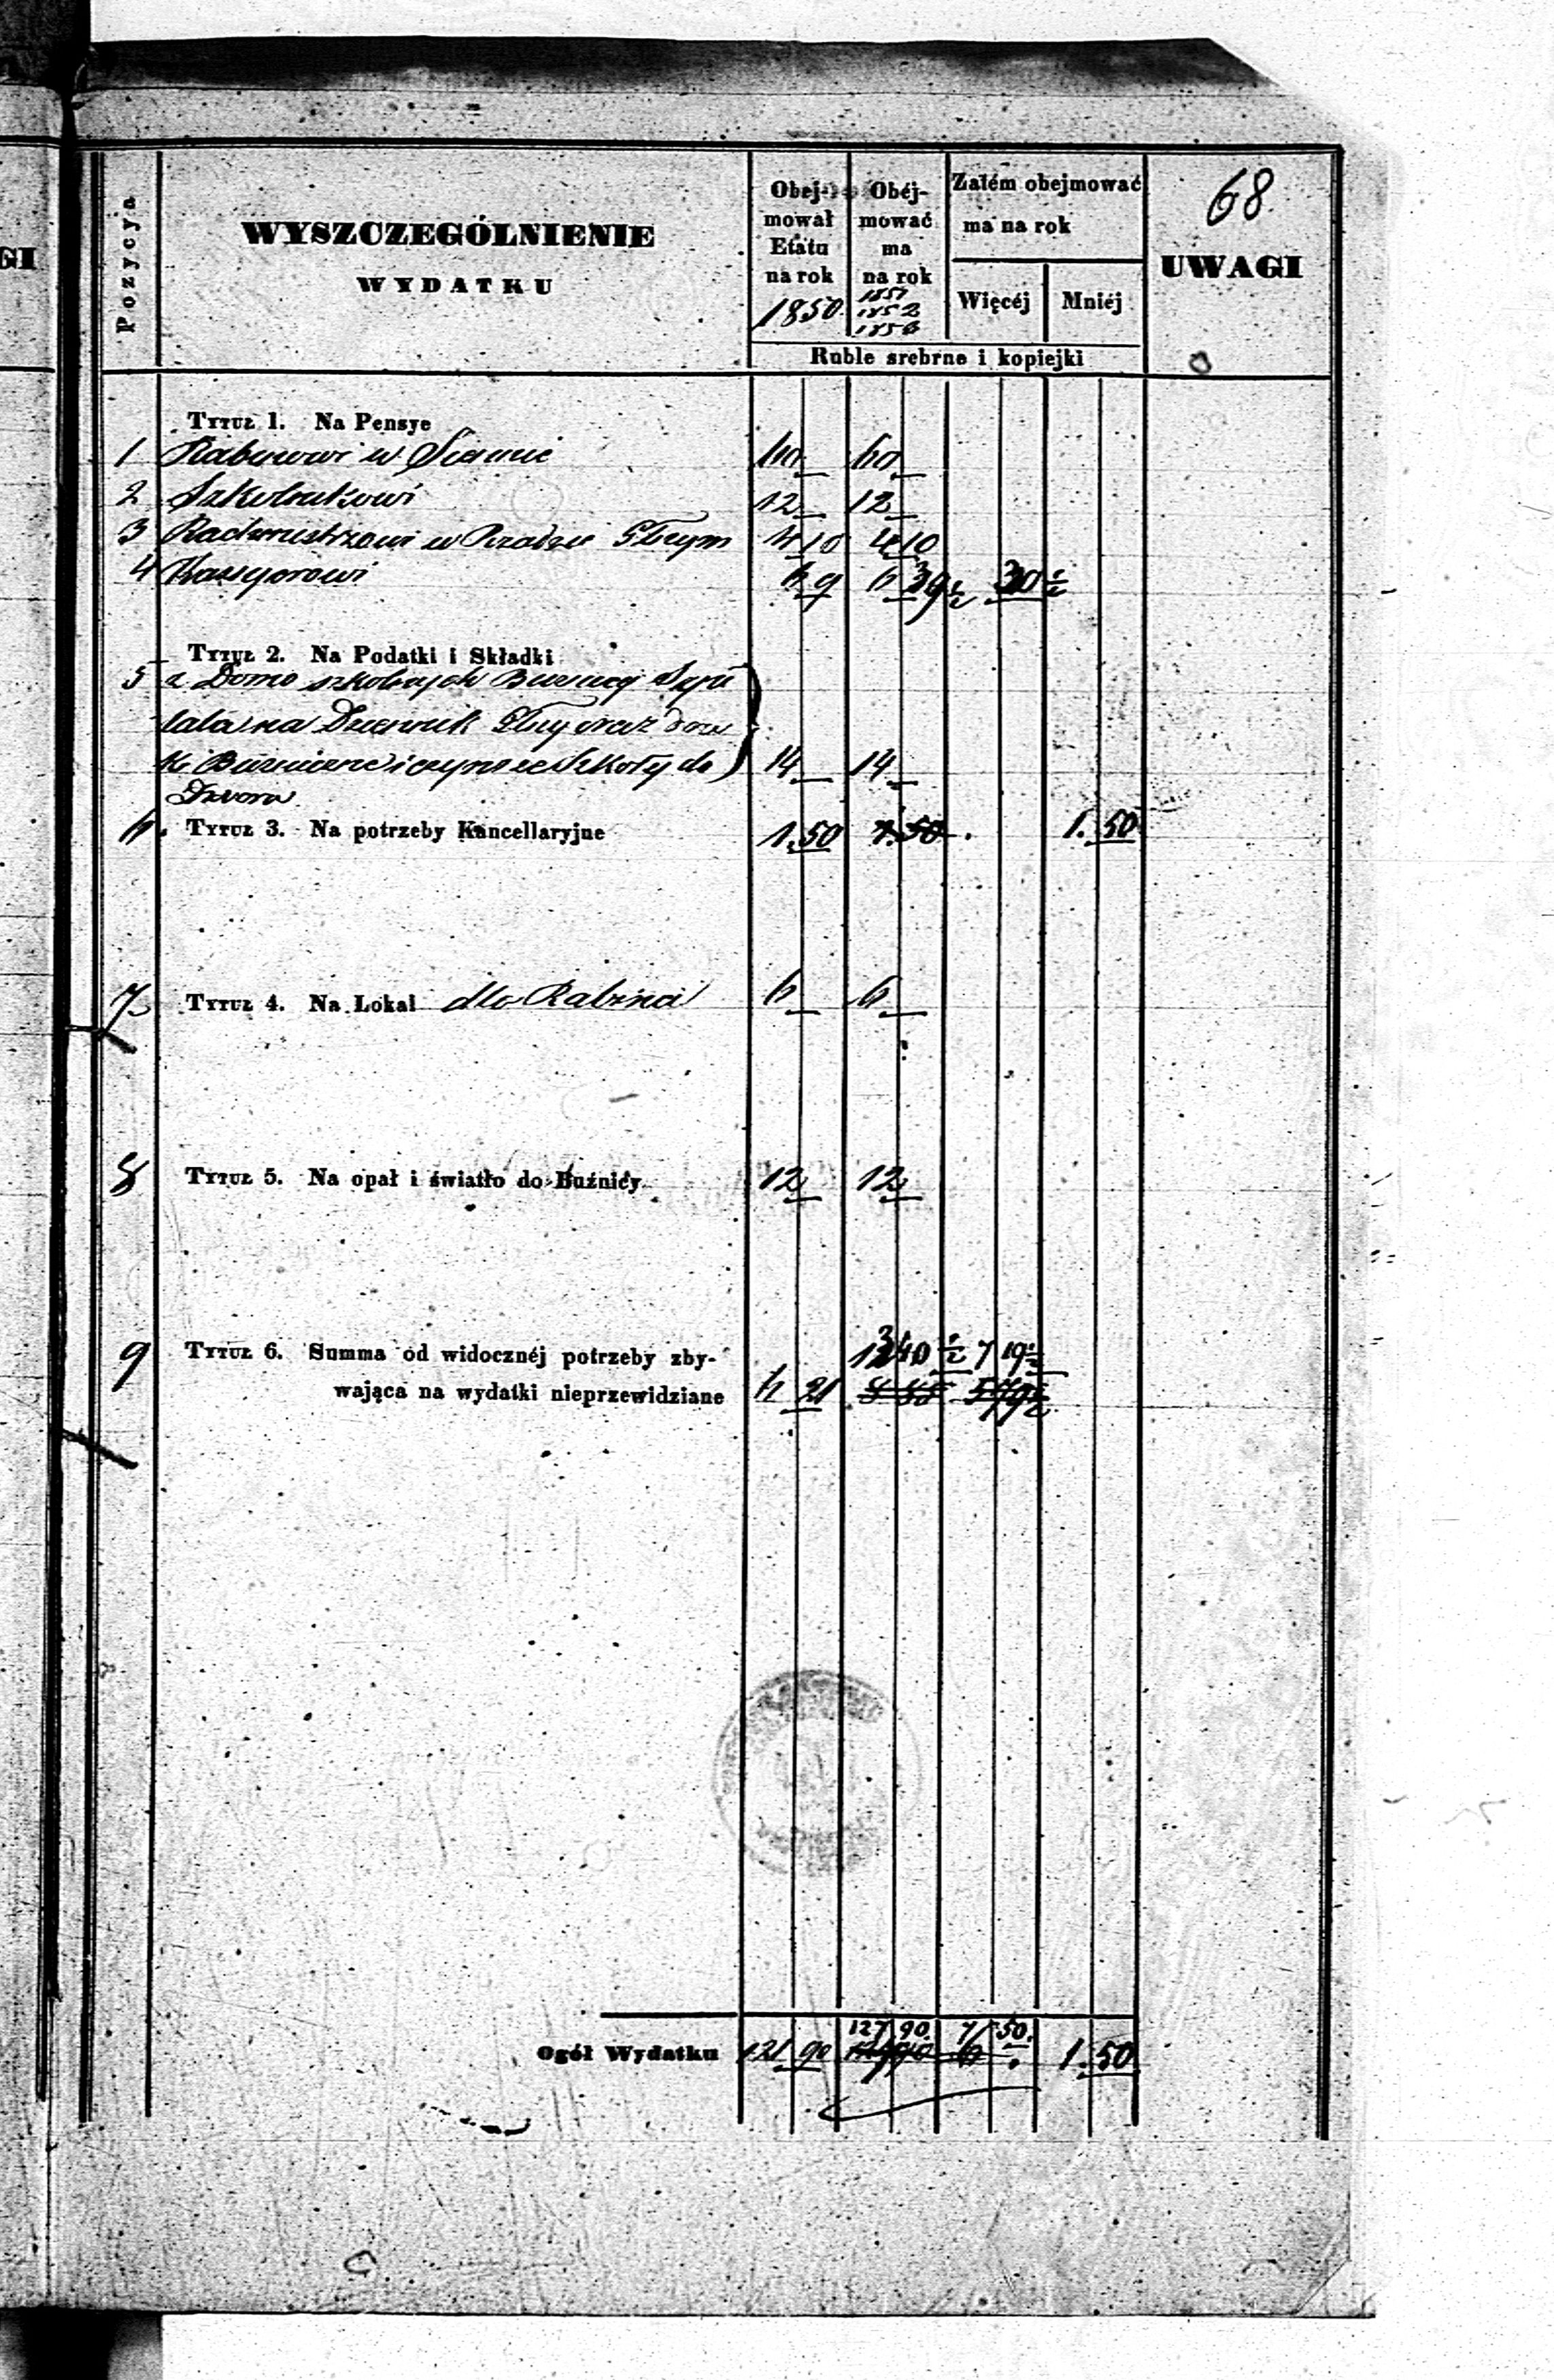 GI
68
Pozycya
WYSZCZEGÓLNIENIE
WYDATKU
Obej-
mował
Etatu
na rok
1850.
Obéj-
mować
ma
na rok
1851
1852
1853
Zatém obejmować
ma na rok
Więcéj
Mniéj
UWAGI
Ruble srebrne i kopiejki
Tytuł 1. Na Pensye
1 Rabinowi w Siennie 60 60
2 Szkolnikowi 12 12
3 Rachmistrzowi w Rządzie Gbrym 4 10 4 10
4 Kassyerowi 6 9 6 39½ 30½
Tytuł 2. Na Podatki i Składki
5 z Domo szkolnych Bużnicy
na Dziennik oraz
Szkoły do 14 14
Dwora
6. Tytuł 3. Na potrzeby Kancellaryjne 1.50 1.50 1.50
7 Tytuł 4. Na Lokal dla Rabina 6 6
8 Tytuł 5. Na opał i światło do Buźnicy 12 12
9 Tytuł 6. Summa od widocznéj potrzeby zby- 13 40½ 7 19½
wająca na wydatki nieprzewidziane 6 21
127 90. 7 50.
Ogół Wydatku 121 90 6 1.50